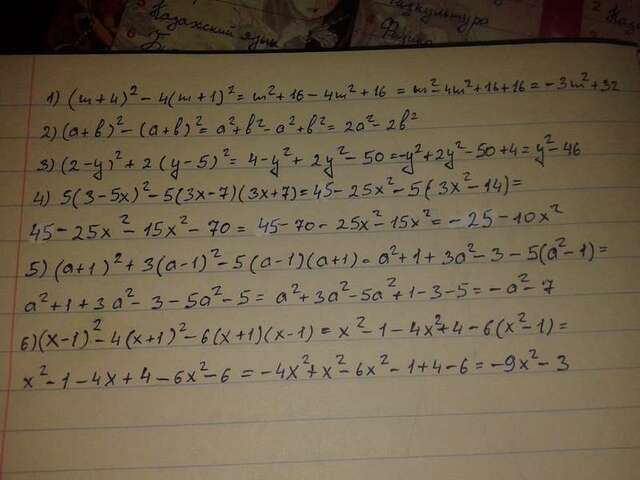 Казахский язык
6
физкультура
6
Физика
2
1) (m+4)² - 4(m+1)² = m²+16-4m²+16 = m²-4m²+16+16 = -3m²+32
2) (a+b)² - (a+b)² = a²+b²-a²+b² = 2a²-2b²
3) (2-y)² + 2(y-5)² = 4-y²+2y²-50 = -y²+2y²-50+4 = y²-46
4) 5(3-5x)² - 5(3x-7)(3x+7) = 45-25x²-5(3x²-14) =
45-25x²-15x²-70 = 45-70-25x²-15x² = -25-10x²
5) (a+1)² + 3(a-1)² - 5(a-1)(a+1) = a²+1+3a²-3-5(a²-1) =
a²+1+3a²-3-5a²-5 = a²+3a²-5a²+1-3-5 = -a²-7
6) (x-1)² - 4(x+1)² - 6(x+1)(x-1) = x²-1-4x²+4-6(x²-1) =
x²-1-4x+4-6x²-6 = -4x²+x²-6x²-1+4-6 = -9x²-3